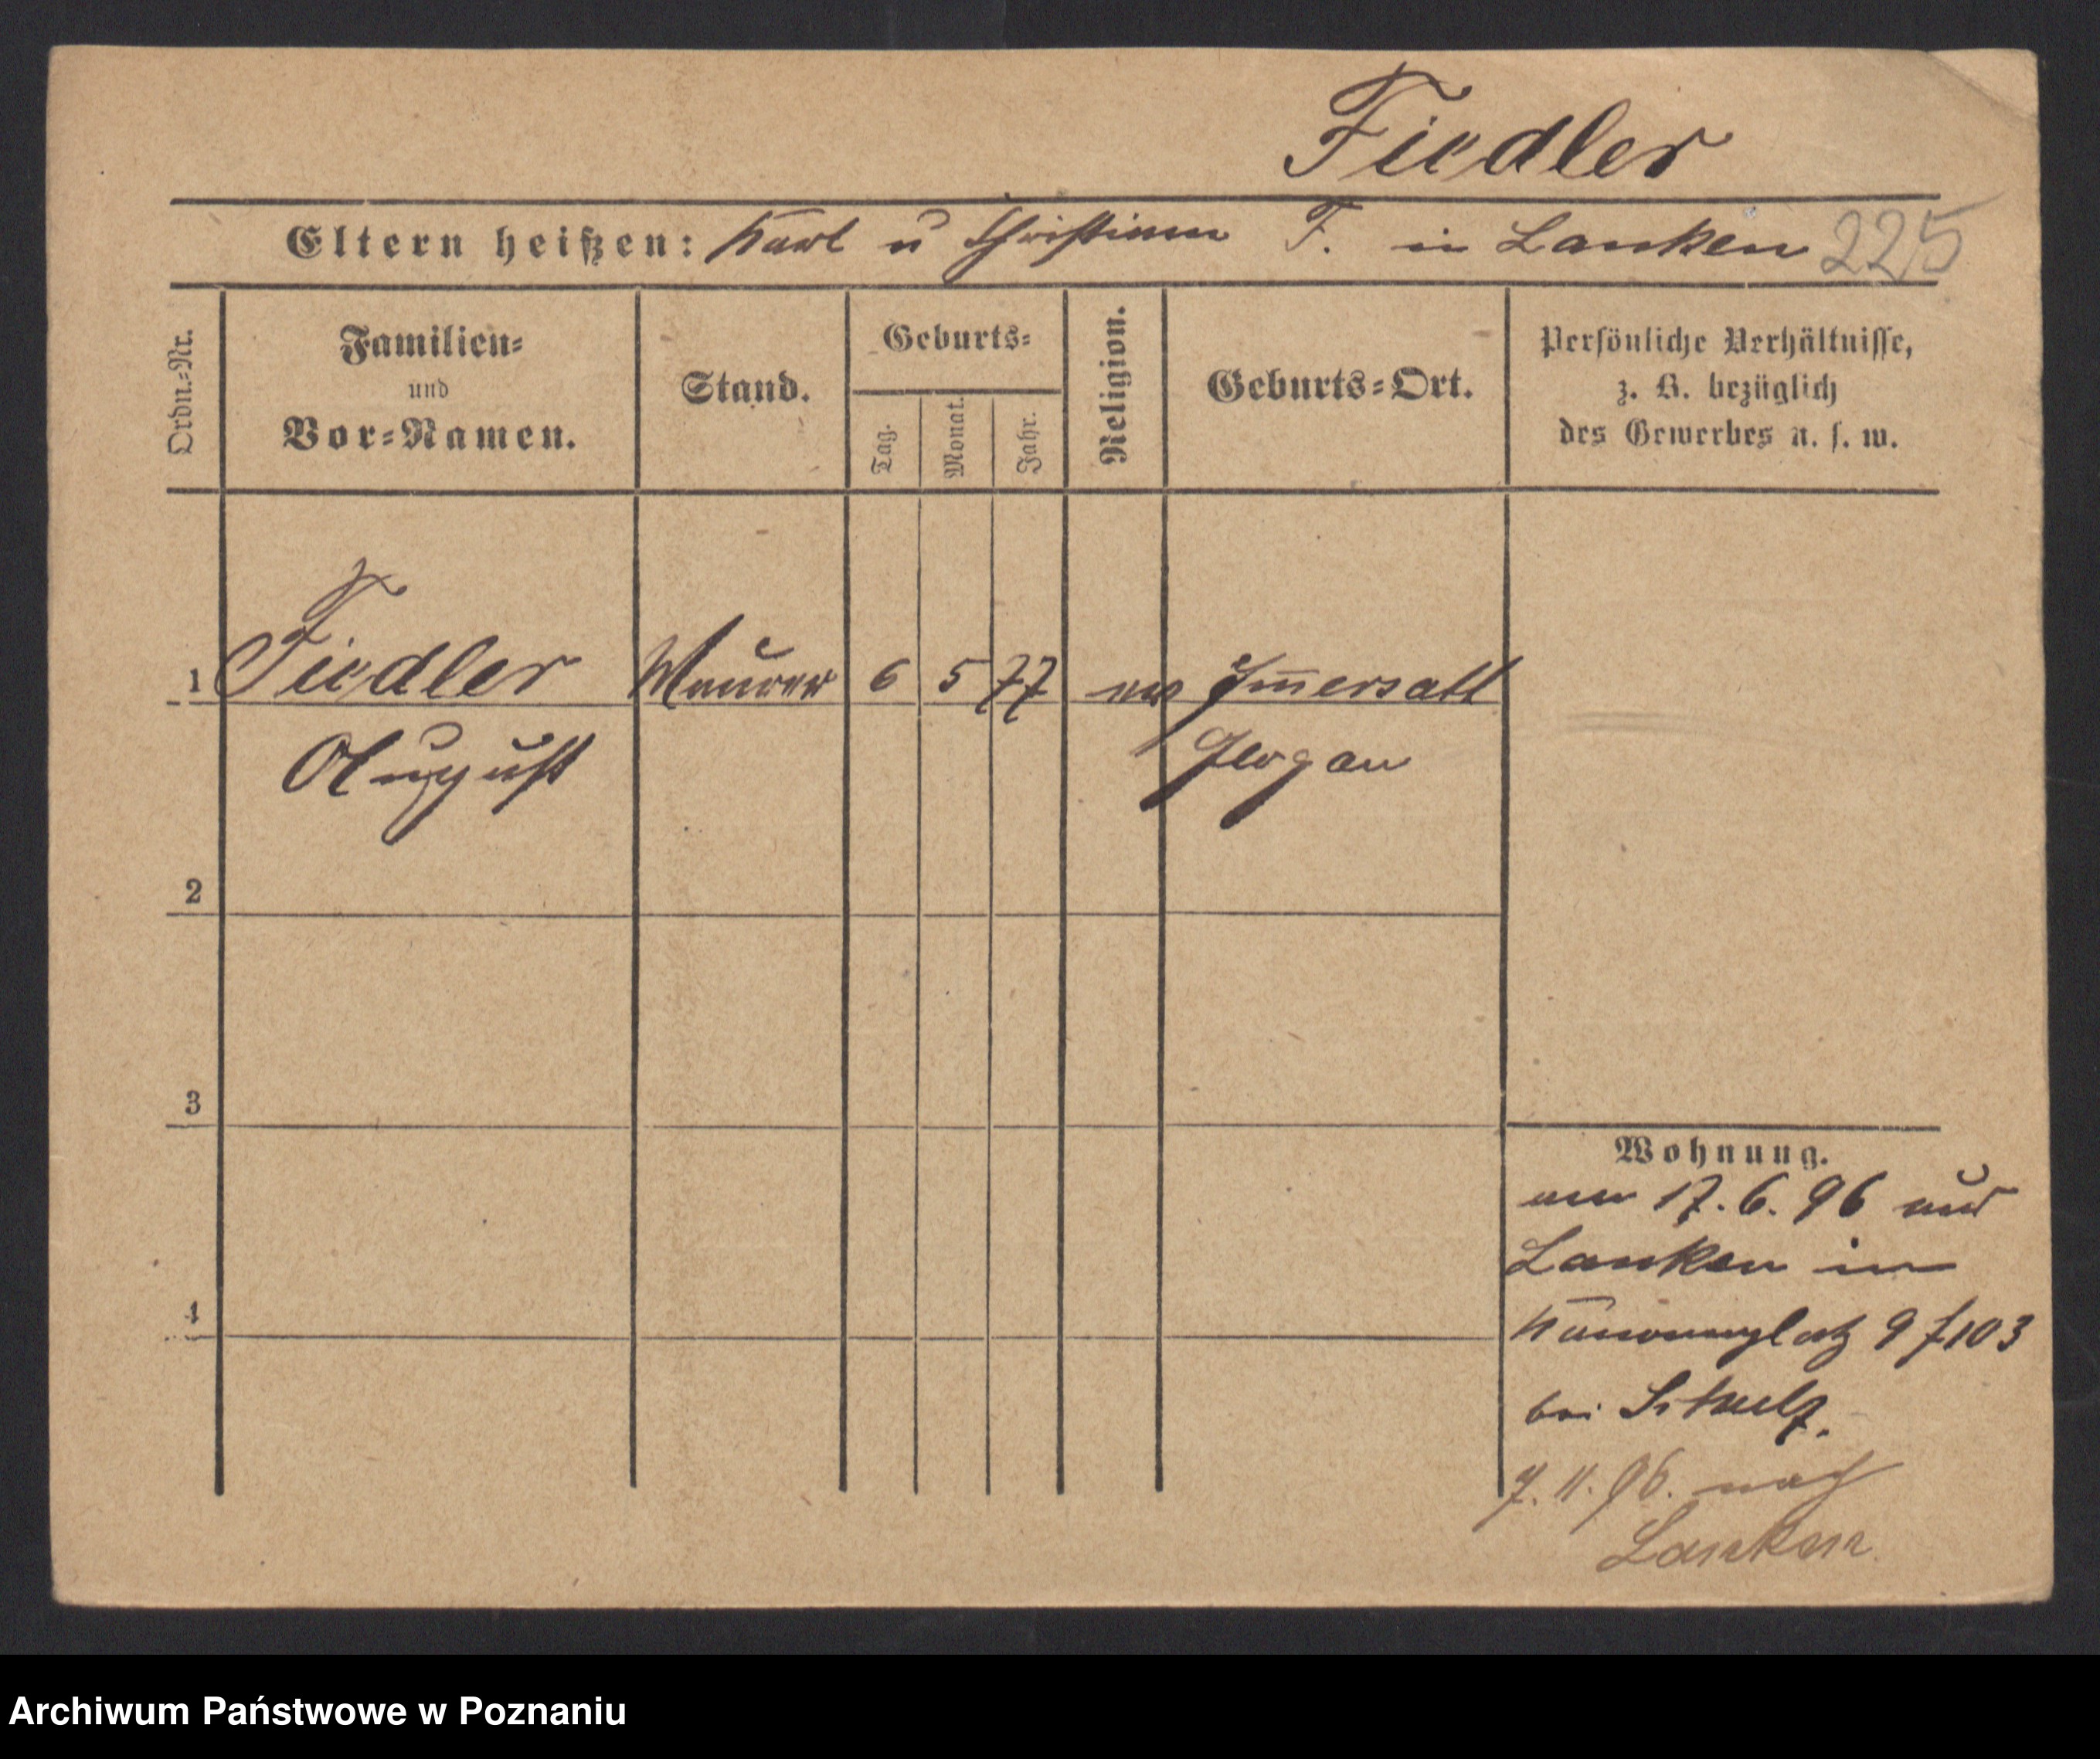 Fiedler
Eltern heißen: Karl u Christiane F. in Lanken 225
Ordn.-Nr.
Familien-
und
Vor-Namen.
Stand.
Geburts-
Tag.
Monat.
Jahr.
Religion.
Geburts-Ort.
Persönliche Verhältnisse,
z. B. bezüglich
des Gewerbes u. s. w.
1 Fiedler Maurer 6 5 77 Im̅ersatt
August Glogau
2
3
4
Wohnung.
17. 6. 96 aus
Lanken in
Kanonenplatz 9 f 103
bei Schulz.
7. 11. 96. nach
Lanken
Archiwum Państwowe w Poznaniu